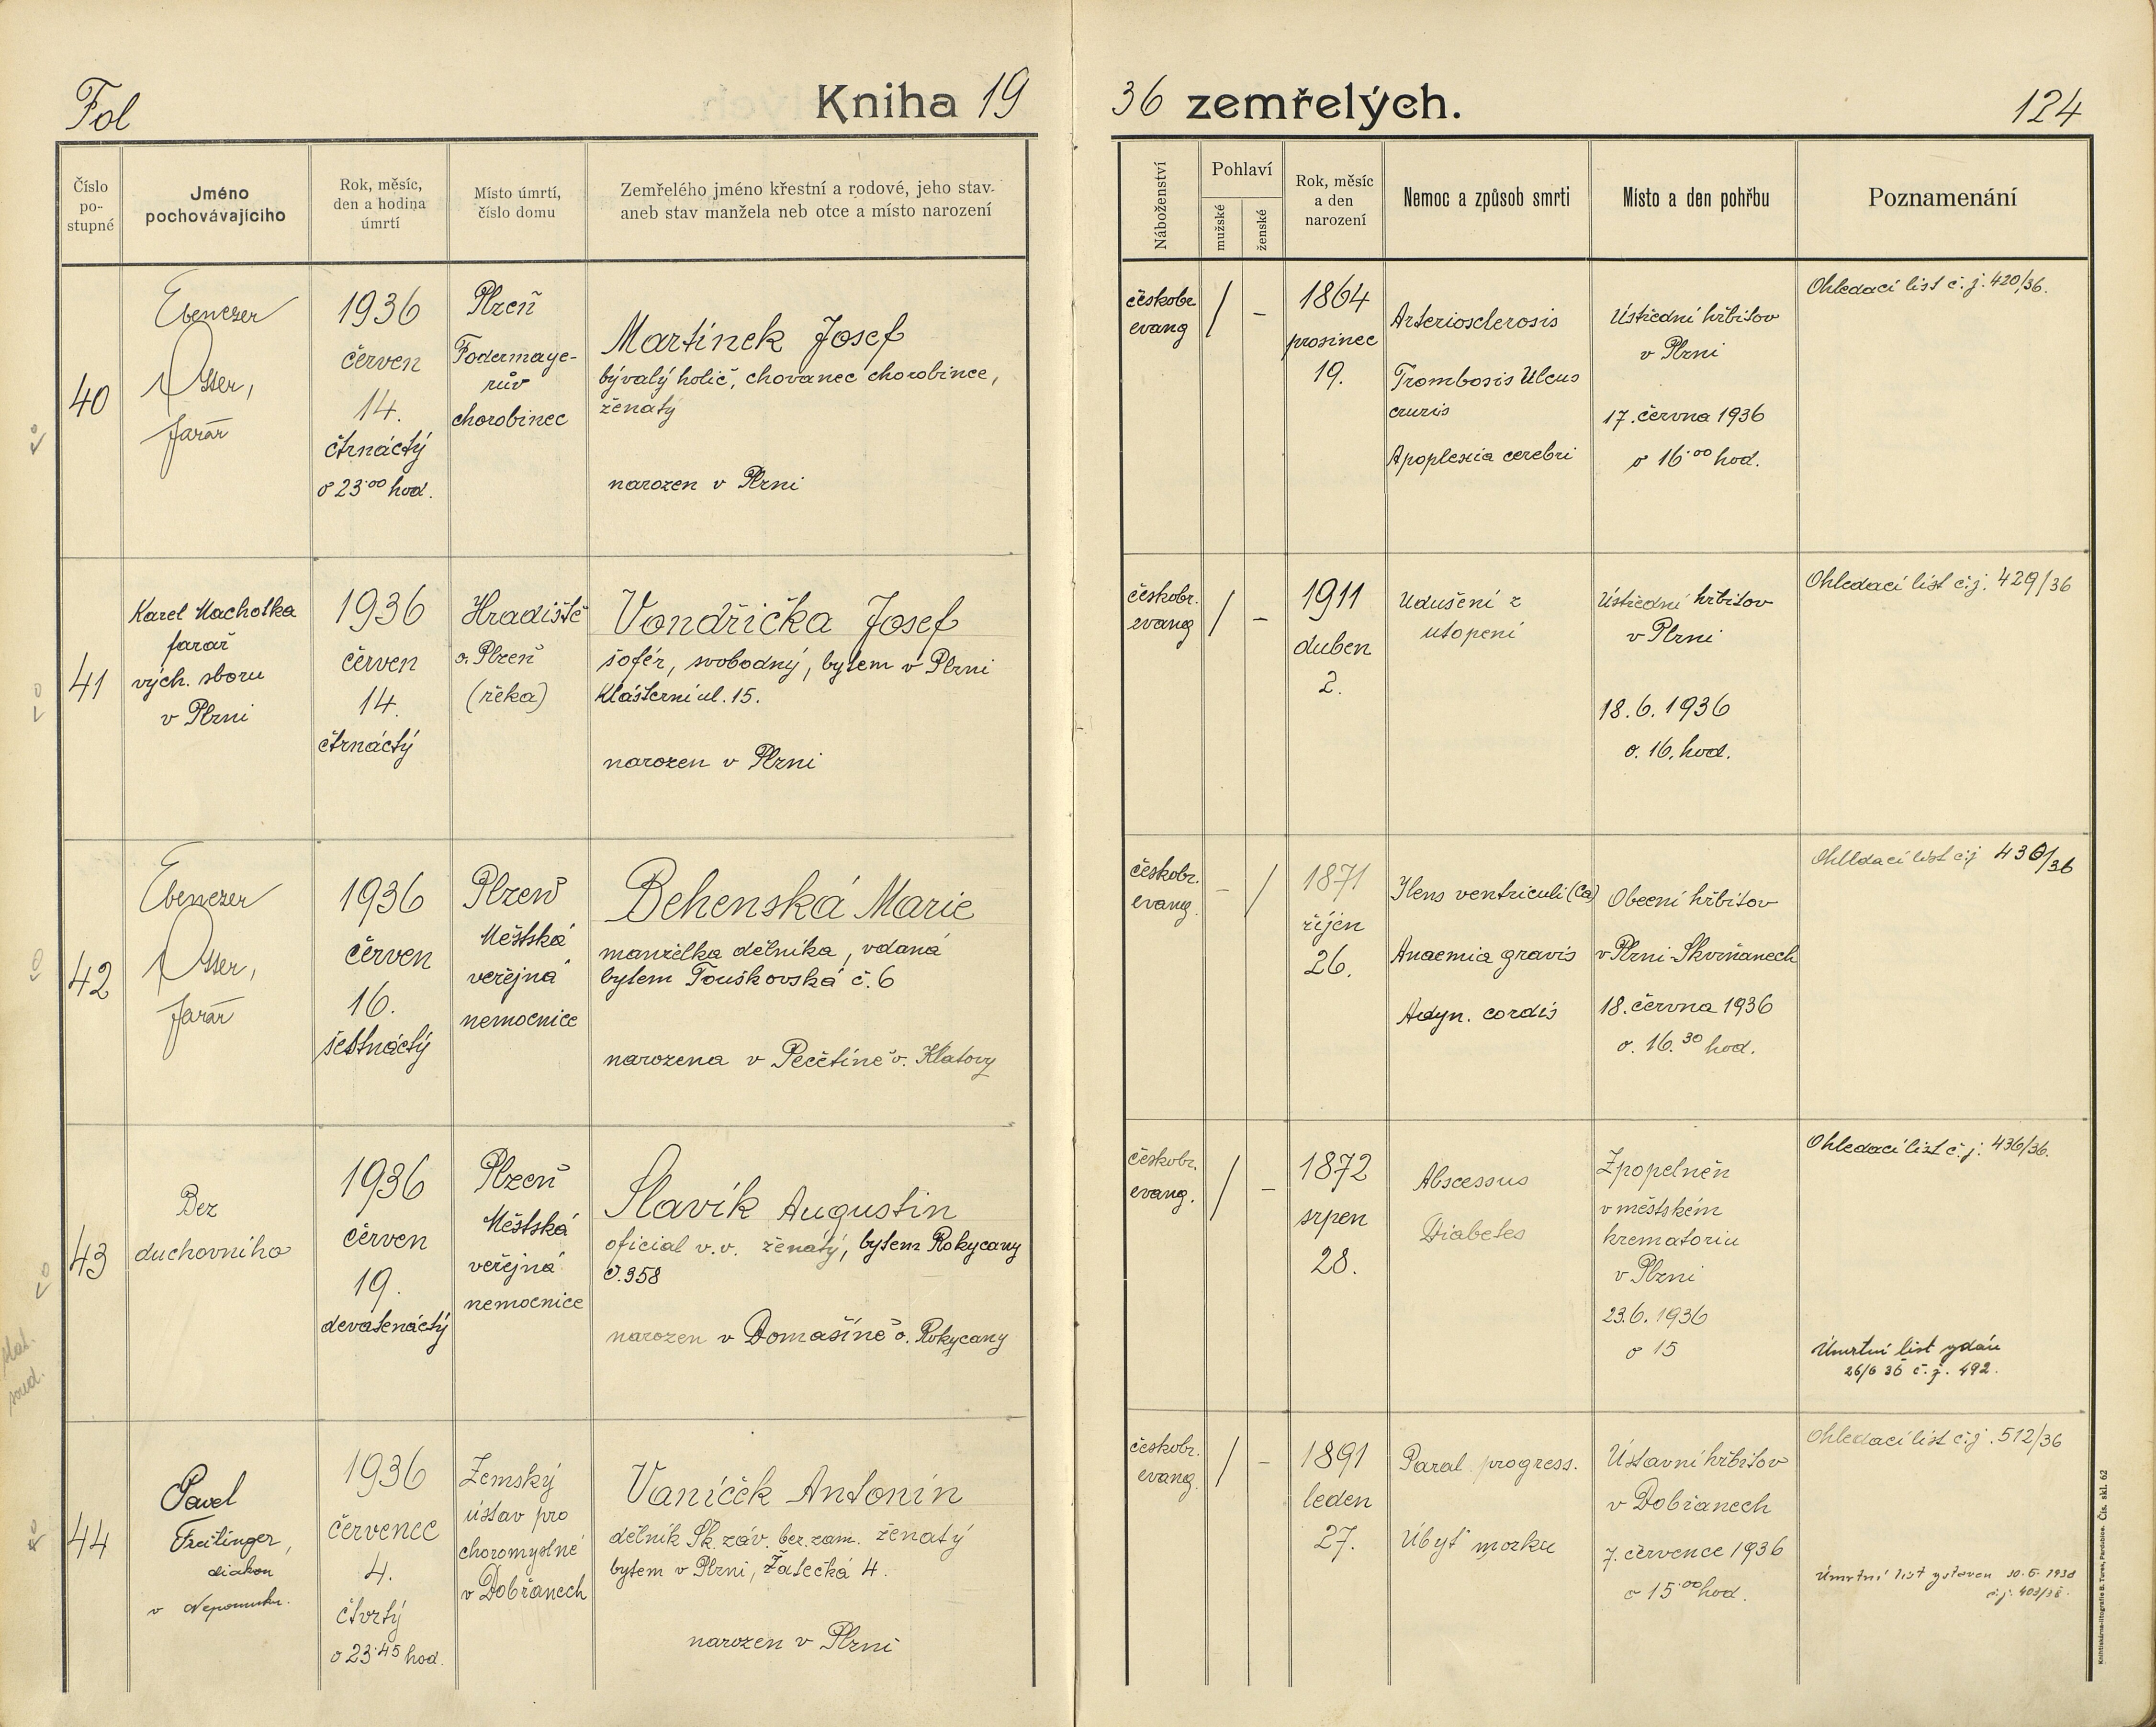 Fol
Kniha 19
36 zemřelých.
124
Číslo
po-
stupné
Jméno
pochovávajícího
Rok, měsíc,
den a hodina
úmrtí
Místo úmrtí,
číslo domu
Zemřelého jméno křestní a rodové, jeho stav
aneb stav manžela neb otce a místo narození
Náboženství
Pohlaví
mužské
ženské
Rok, měsíc
a den
narození
Nemoc a způsob smrti
Místo a den pohřbu
Poznamenání
40
Ebenezer
farář
1936
červen
14.
čtrnáctý
o 23·00 hod.
Plzeň
Fodermaye-
rův
chorobinec
Martínek Josef
bývalý holič, chovanec chorobince,
ženatý
narozen v Plzni
českobr.
evang
/
–
1864
prosinec
19.
Arteriosclerosis
Trombosis Ulcus
cruris
Apoplexia cerebri
Ústřední hřbitov
v Plzni
17. června 1936
o 16·00 hod.
Ohledací list č. j. 420/36.
41
Karel Machotka
farář
vých. sboru
v Plzni
1936
červen
14.
čtrnáctý
Hradiště
o. Plzeň
(řeka)
Vondřička Josef
šofér, svobodný, bytem v Plzni
Klášterní ul. 15.
narozen v Plzni
českobr.
evang
/
–
1911
duben
2.
Udušení z
utopení
Ústřední hřbitov
v Plzni
18. 6. 1936
o. 16. hod.
Ohledací list č.j. 429/36
42
Ebenezer
farář
1936
červen
16.
šestnáctý
Plzeň
Městská
veřejná
nemocnice
Behenská Marie
manželka dělníka, vdaná
bytem Touškovská č. 6
narozena v Pečetíně o. Klatovy
českobr.
evang.
–
/
1871
říjen
26.
Ilens ventriculi (Ca)
Anaemia gravis
Adyn. cordis
Obecní hřbitov
v Plzni-Skvrňanech
18. června 1936
o. 16.30 hod.
Ohledací list č.j. /36
43
Bez
duchovního
1936
červen
19.
devatenáctý
Plzeň
Městská
veřejná
nemocnice
Slavík Augustin
oficial v.v. ženatý, bytem Rokycany
č. 358
narozen v Domašíně o. Rokycany
českobr.
evang.
/
–
1872
srpen
28.
Abscessus
Diabetes
Zpopelněn
v městském
krematoriu
v Plzni
23.6.1936
o 15
Ohledací list č. j. 436/36.
Úmrtní list vydán
26/6 36 č. j. 492.
44
Pavel
Freitinger,
diakon
v Nepomuku.
1936
červenec
4.
čtvrtý
o 23·45 hod.
Zemský
ústav pro
choromyslné
v Dobřanech
Vaníček Antonín
dělník Šk. záv. bez. zam. ženatý
bytem v Plzni, Žatecká 4.
narozen v Plzni
českobr.
evang.
/
–
1891
leden
27.
Paral. progress.
Úbyť mozku
Ústavní hřbitov
v Dobřanech
7. července 1936
o 15·00 hod.
Ohledací list č.j. 512/36
Úmrtní list
Knihtiskárna-litografie B. Turek, Pardubice. Čís. skl. 62